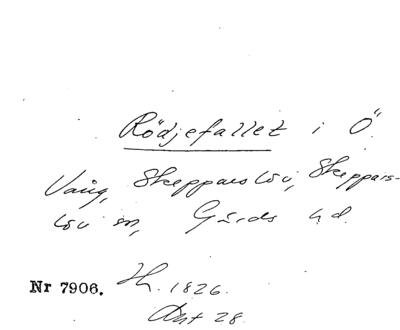 Rödjefallet i Ö
Vång, Skepparslöv, Skeppars-
löv sn, Gärds hd.
Nr 7906. Lh. 1826.
Akt 28